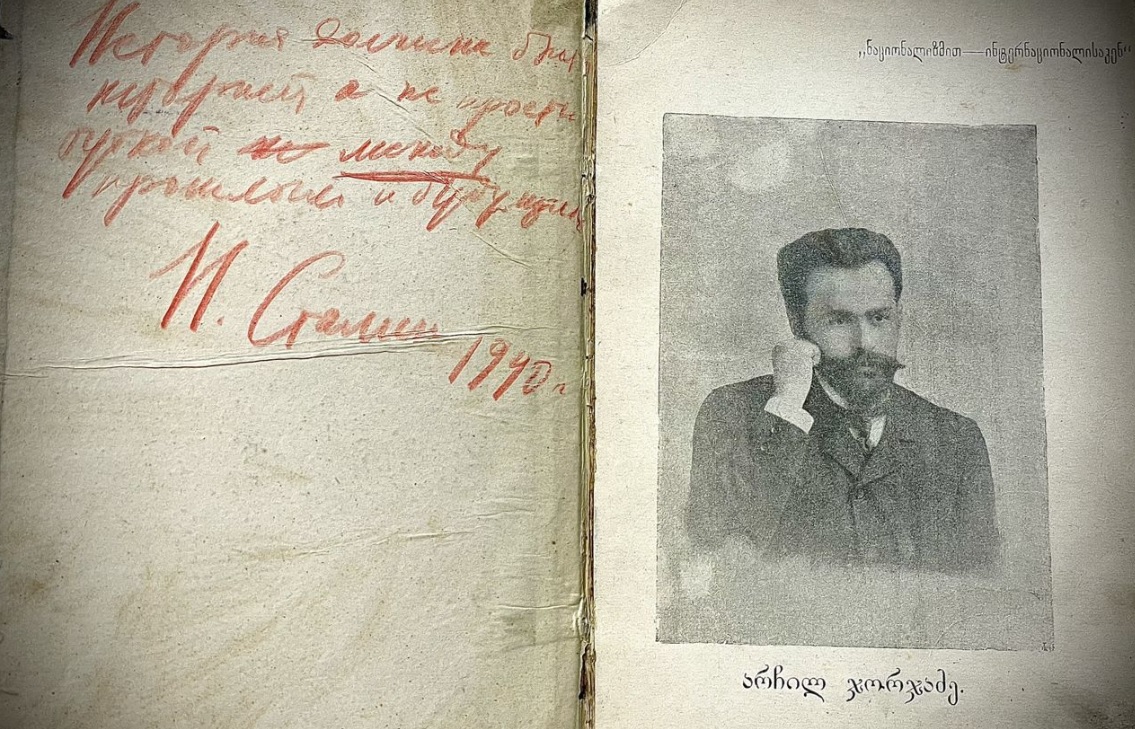 История должна быт
историей а не просто
будкой не между
прошлым и будущим
И. Сталин
1940 г
„ნაციონალიზმით—ინტერნაციონალისაკენ“
არჩილ ჯორჯაძე.